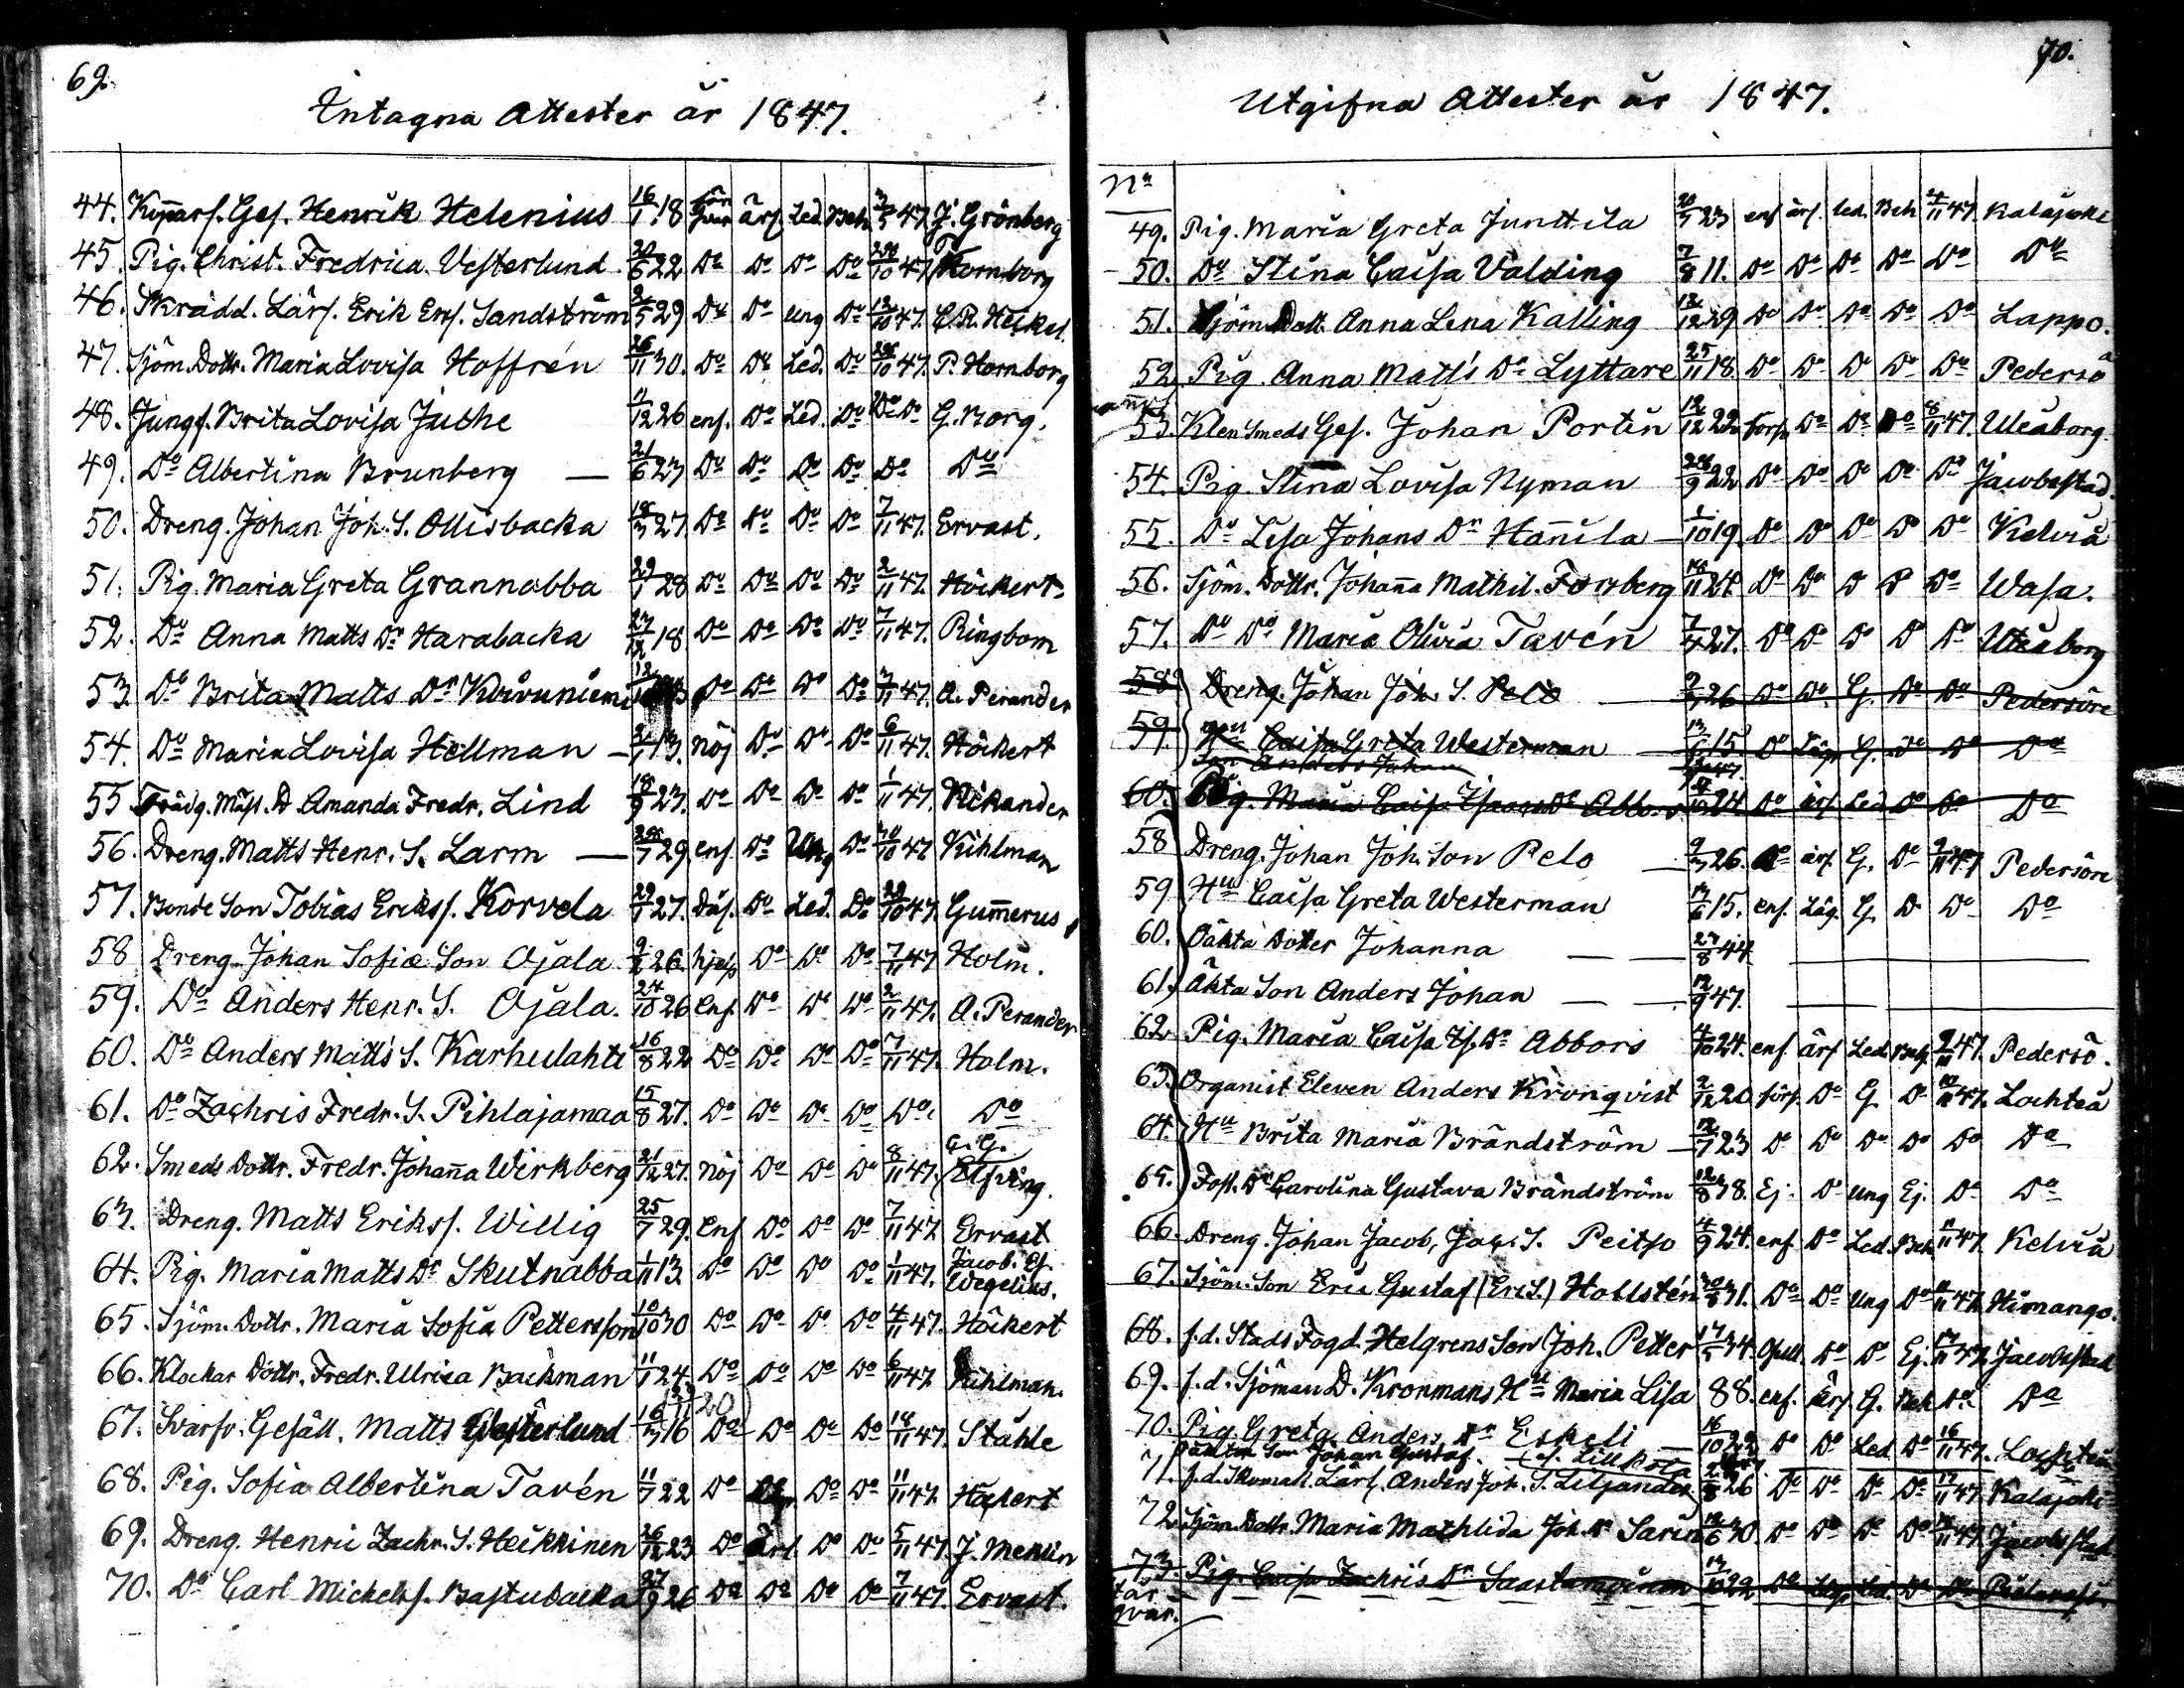 69.
Intagna Attester år 1847.
44. Kopparf. Ges. Henrik Helenius 16/1 18 ärf. Led. Beh. 3/5 47. J. Grönberg
45. Pig. Christ. Fredrica Vesterlund 20/6 22 Do Do Do Do 28/10 47. Hornborg
46. Skrädd. Lärl. Erik Ersf. Sandström 2/5 29 Do Do ung Do 12/10 47. C.R. Heickel
47. Sjöm. Dottr. Maria Lovisa Hoffrén 26/11 30. Do Do Led. Do 28/10 47. P. Hornborg
48. Jungf. Brita Lovisa Juthe 11/12 26 enf. Do Led. Do Do Do G. Borg.
49. Do Albertina Brunberg — 21/6 23 Do Do Do Do Do Do
50. Dreng. Johan Joh. S. Ollisbacka 18/3 27. Do Do Do Do 7/11 47. Ervast.
51. Pig. Maria Greta Grannabba 29/7 28 Do Do Do Do 2/11 47. Höckert
52. Do Anna Matts Dr Harabacka 27/12 18 Do Do Do Do 7/11 47. Ringbom
53. Do Brita Matts Dr Koivuniemi Do Do Do Do 3/11 47. A. Perander
54. Do Maria Lovisa Hellman — 13. nöj Do Do Do 6/11 47. Höckert
55 Trädg. Mäst. D Amanda Fredr. Lind 18/9 23. Do Do Do Do 1/11 47. Nikander
56. Dreng. Matts Henr. S. Larm — 28/7 29. enf Do Ung Do 30/10 47. Kihlman
57. Bonde Son Tobias Eriksf. Korvela 29/7 27. Do Led. Do 29/10 47. Gummerus
58 Dreng. Johan Sofiæ Son Ojala 26. hjelp Do Do Do 7/11 47 Holm.
59. Do Anders Henr. S. Ojala. 24/10 26 Enf. Do Do Do 2/11 47. A. Perander
60. Do Anders Matts S. Karhulahti 16/8 22 Do Do Do Do 7/11 47. Holm.
61. Do Zachris Fredr. S. Pihlajamaa 15/8 27. Do Do Do Do Do Do
62. Smeds Dottr. Fredr. Johanna Wirkberg 21/12 27. nöj Do Do Do 8/11 47. G.G. Elfving.
63. Dreng. Matts Eriksf. Willig 25/7 29. Enf Do Do Do 7/11 47. Ervast
64. Pig. Maria Matts Dr Skutnabba 1/11 13. Do Do Do Do 1/11 47. Jacob. Ef. Wegelius.
65. Sjöm. Dottr. Maria Sofia Pettersson 10/10 30 Do Do Do Do 4/11 47. Höckert
66. Klockar Dottr. Fredr. Ulrica Backman 11/1 24. Do Do Do Do 6/11 47. Kihlman.
67. Svarfv. Gesäll. Matts Westerlund 16/3 16 Do Do Do Do 18/11 47. Ståhle
68. Pig. Sofia Albertina Tavén 11/7 22 Do Do Do 11/11 47. Höckert
69. Dreng. Henric Zachr. S. Heikkinen 26/12 23 Do Ärl Do Do 5/11 47. J. Menlin
70. Do Carl Michelsf. Bastubacka 27/9 26 Do Do Do Do 7/11 47. Ervast.
70.
Utgifna Attester år 1847.
No
49. Pig. Maria Greta Junttila 20/7 23 enf ärf. led. Beh 4/11 47. Kalajoki
50. Do Stina Caisa Valding 7/8 11. Do Do Do Do Do Do
51. Sjöm. Dott. Anna Lena Kalling 12/12 29 Do Do Do Do Do Lappo.
52. Pig. Anna Matts Dr Lyttare 25/11 18. Do Do Do Do Do Pedersö
53. Klen Smeds Ges. Johan Portin 12/12 22. Do Do Do 8/11 47. Uleåborg.
54. Pig. Stina Lovisa Nyman 28/9 22 Do Do Do Do Do Jacobstad.
55. Do Lisa Johans Dr Hannila — 1/10 19. Do Do Do Do Do Kelviå
56. Sjöm. Dottr. Johanna Mathil. Forsberg 24. Do Do D D Do Wasa.
57. Do Do Maria Olivia Tavén 7/4 27. Do Do Do Do Do Uleåborg
58 Dreng. Johan Joh. S. Pelo 26 Do Do. G. Do Do Pedersöre
59. Hu Caisa Greta Westerman 13/6 15 Do Läg. G. Do Do Do
Son Anders Johan
60. Pig. Maria Caisa Dr Abbors 4/10 24 Do ärf Led Do Do Do
58 Dreng. Johan Joh. Son Pelo 26. ärf G. Do 2/11 47. Pedersöre
59 Hu Caisa Greta Westerman 13/6 15. enf. Läg. G. D Do Do
60. Oäkta Dotter Johanna 27/8 44
61. Äkta Son Anders Johan 12/9 47.
62 Pig. Maria Caisa Is. Dr Abbors 4/10 24. enf. ärf Led. Beh. 2/11 47. Pedersö.
63. Organist Eleven Anders Kronqvist 2/12 20 förf. Do G. D 47. Lochteå
64. Hu Brita Maria Brändström — 12/7 23 D Do Do Do Do Do
65. Fost. Dr Carolina Gustava Brändström 12/8 38. Ej. D ung Ej. Do Do
66. Dreng. Johan Jacob, Jac. S. Peitso 4/9 24. enf. Do Led. Beh. 11/11 47. Kelviå
67. Sjöm. Son Eric Gustaf (Eri S.) Hollstén 30/8 31. Do Do Ung Do 47. Himango.
68. f.d. Stads Fogd. Helgrens Son Joh. Petter 34. Do D Ej. Jacobstad
69. f.d. Sjöman D. Kronmans Hu Maria Lisa 88. enf. ärf. G. Beh Do Do
70. Pig. Greta Anders Dr Eskeli — 16/10 22 Do Do Led Do 16/11 47. Lochteå
Oäkta Son Johan Gustaf.
71. f.d. Skomak. Lärl. Anders Joh. S. Liljander 26 Do Do Do Do 17/11 47. Kalajoki
72. Sjöm. Dottr. Maria Mathlida Joh. Dr Sarin 30. Do Do Do Do 47. Jacobstad
73. Pig. Caisa Zachris Dr Saastamoinen 22
är
qvar.